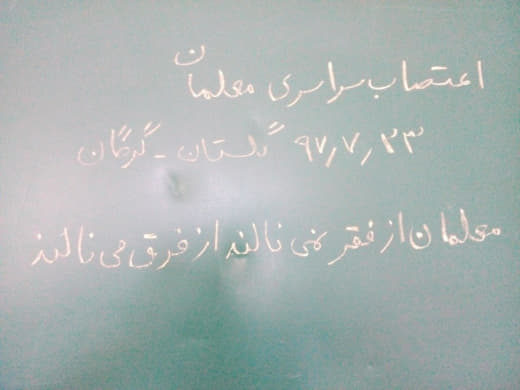 اعتصاب سراسری معلمان
۹۷٫۷٫۲۳ گلستان - گرگان
معلمان از فقر نمی نالند از فرق می نالند